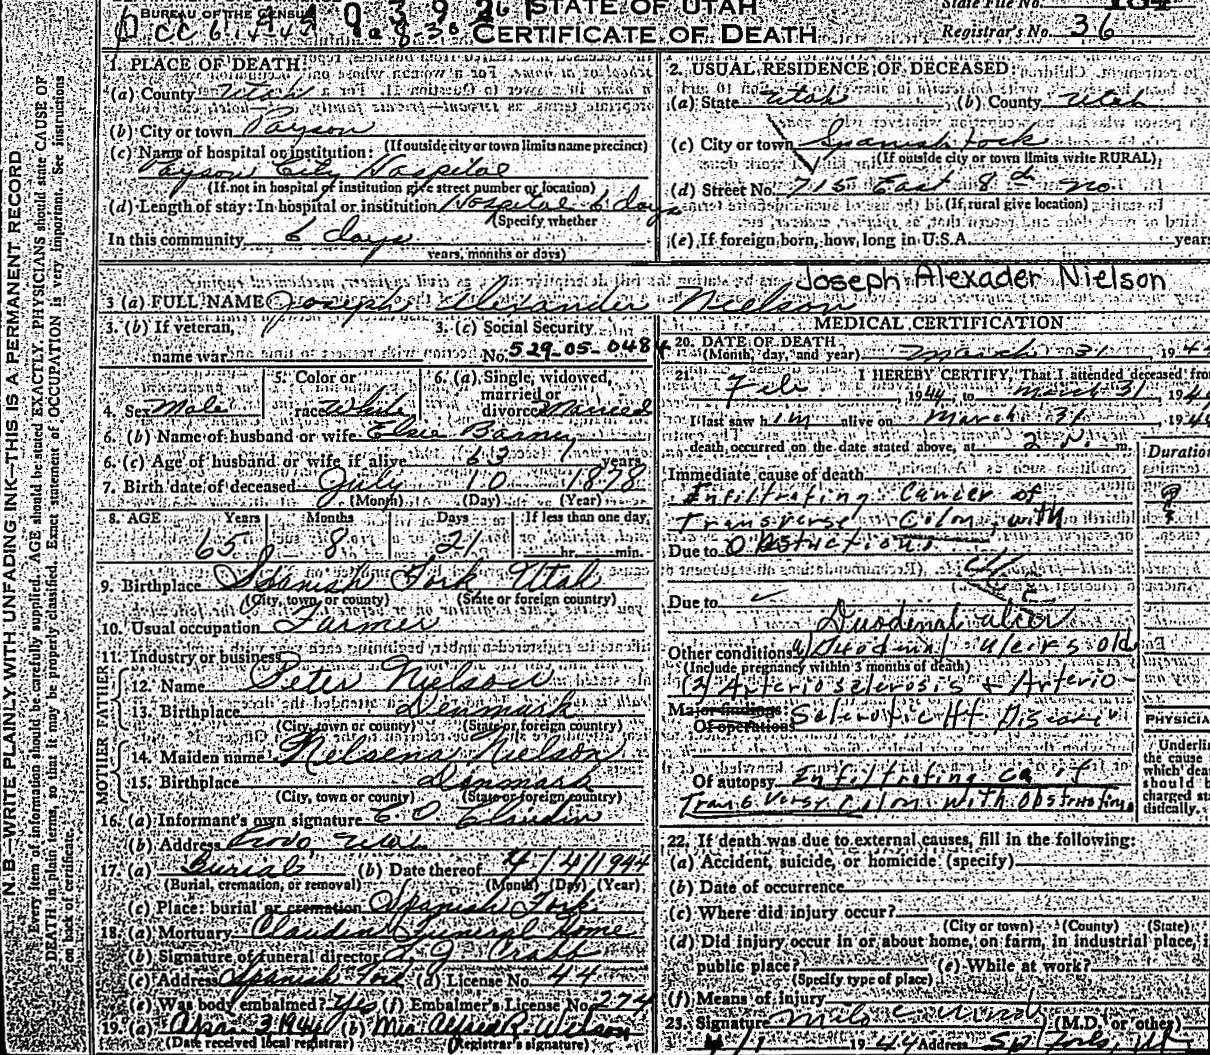 BUREAU OF THE CENSUS
STATE OF UTAH
CERTIFICATE OF DEATH
State File No.
Registrar's No. 36
N.B.—WRITE PLAINLY WITH UNFADING INK—THIS IS A PERMANENT RECORD
Every item of information should be carefully supplied. AGE should be stated EXACTLY. PHYSICIANS should state CAUSE OF
DEATH in plain terms, so that it may be properly classified. Exact statement of OCCUPATION is very important. See instructions
on back of certificate.
1. PLACE OF DEATH:
(a) County Utah
(b) City or town Payson
(If outside city or town limits name precinct)
(c) Name of hospital or institution:
Payson City Hospital
(If not in hospital or institution give street number or location)
(d) Length of stay: In hospital or institution Hospital 6 days
(Specify whether
In this community 6 days
years, months or days)
2. USUAL RESIDENCE OF DECEASED:
(a) State Utah (b) County Utah
(c) City or town Spanish Fork
(If outside city or town limits write RURAL)
(d) Street No. 715 East 8th No.
(If rural give location)
(e) If foreign born, how long in U.S.A. years
Joseph Alexader Nielson
3 (a) FULL NAME Joseph Alexander Nielson
3. (b) If veteran,
name war
3. (c) Social Security
No. 529-05-0484
4. Sex Male
5. Color or
race White
6. (a) Single, widowed,
married or
divorced Married
6. (b) Name of husband or wife Elsie Barney
6. (c) Age of husband or wife if alive 63 years
7. Birth date of deceased July 10 1878
(Month) (Day) (Year)
8. AGE Years Months Days If less than one day
65 8 21 hr. min.
9. Birthplace Spanish Fork Utah
(City, town, or county) (State or foreign country)
10. Usual occupation Farmer
11. Industry or business
FATHER
12. Name Peter Nielson
13. Birthplace Denmark
(City, town or county) (State or foreign country)
MOTHER
14. Maiden name Nielsena Nielson
15. Birthplace Denmark
(City, town or county) (State or foreign country)
16. (a) Informant's own signature E. D. Claudin
(b) Address Provo, Utah
17. (a) Burial (b) Date thereof 4/4/1944
(Burial, cremation, or removal) (Month) (Day) (Year)
(c) Place: burial or cremation Spanish Fork
18. (a) Mortuary Claudin Funeral Home
(b) Signature of funeral director L. J. Crabb
(c) Address Spanish Fork (d) License No. 44
(e) Was body embalmed? Yes (f) Embalmer's License No. 274
19. (a) Apr. 3 1944 (b) Mrs. Alfred R. Wilson
(Date received local registrar) (Registrar's signature)
MEDICAL CERTIFICATION
20. DATE OF DEATH
(Month, day, and year) March 31, 194
21. I HEREBY CERTIFY, That I attended deceased from
Feb, 1944, to March 31 194
I last saw him alive on March 31 194
death occurred on the date stated above, at 2 P. m.
Duration
Immediate cause of death
Infiltrating Cancer of
Transverse Colon, with
Due to Obstructions
Due to
Duodenal ulcer
Other conditions (1) Duodenal ulcers old
(Include pregnancy within 3 months of death)
(2) Arteriosclerosis + Arterio-
Major findings: Sclerotic Ht. Disease
Of operations
PHYSICIA
Underlin
the cause
which dea
should b
charged sta
distically.
Of autopsy Infiltrating Ca of
Transverse Colon with obstructions
22. If death was due to external causes, fill in the following:
(a) Accident, suicide, or homicide (specify)
(b) Date of occurrence
(c) Where did injury occur?
(City or town) (County) (State)
(d) Did injury occur in or about home, on farm, in industrial place, i
public place? (e) While at work?
(Specify type of place)
(f) Means of injury
23. Signature (M.D. or other)
4/1 1944 Address Sp. Fork, Ut